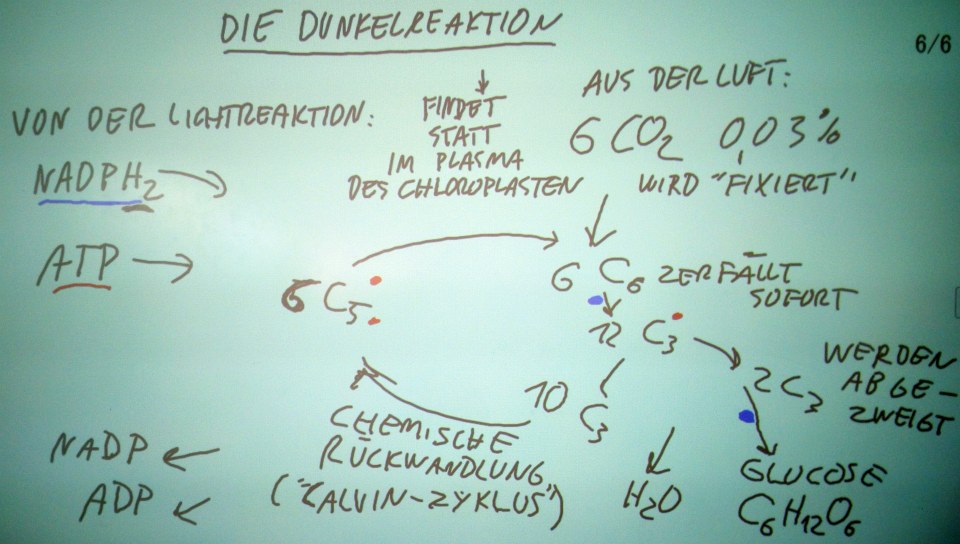 DIE DUNKELREAKTION
6/6
VON DER LICHTREAKTION:
NADPH₂
ATP
FINDET
STATT
IM PLASMA
DES CHLOROPLASTEN
AUS DER LUFT:
6 CO₂ 0,03%
WIRD "FIXIERT"
6 C₅
6 C₆ ZERFÄLLT
SOFORT
12 C₃
2 C₃
WERDEN
ABGE-
ZWEIGT
10 C₃
CHEMISCHE
RÜCKWANDLUNG
("CALVIN-ZYKLUS")
H₂O
GLUCOSE
C₆H₁₂O₆
NADP
ADP